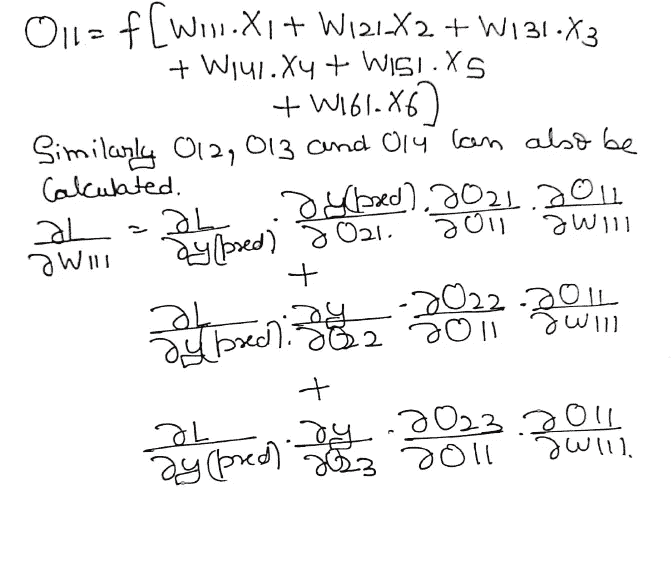 O11 = f[W111.X1 + W121.X2 + W131.X3
+ W141.X4 + W151.X5
+ W161.X6]
Similarly O12, O13 and O14 can also be
Calculated.
∂L/∂W111 = ∂L/∂y(pred) . ∂y(pred)/∂O21 . ∂O21/∂O11 . ∂O11/∂W111
+
∂L/∂y(pred) . ∂y/∂O22 . ∂O22/∂O11 . ∂O11/∂W111
+
∂L/∂y(pred) . ∂y/∂O23 . ∂O23/∂O11 . ∂O11/∂W111.